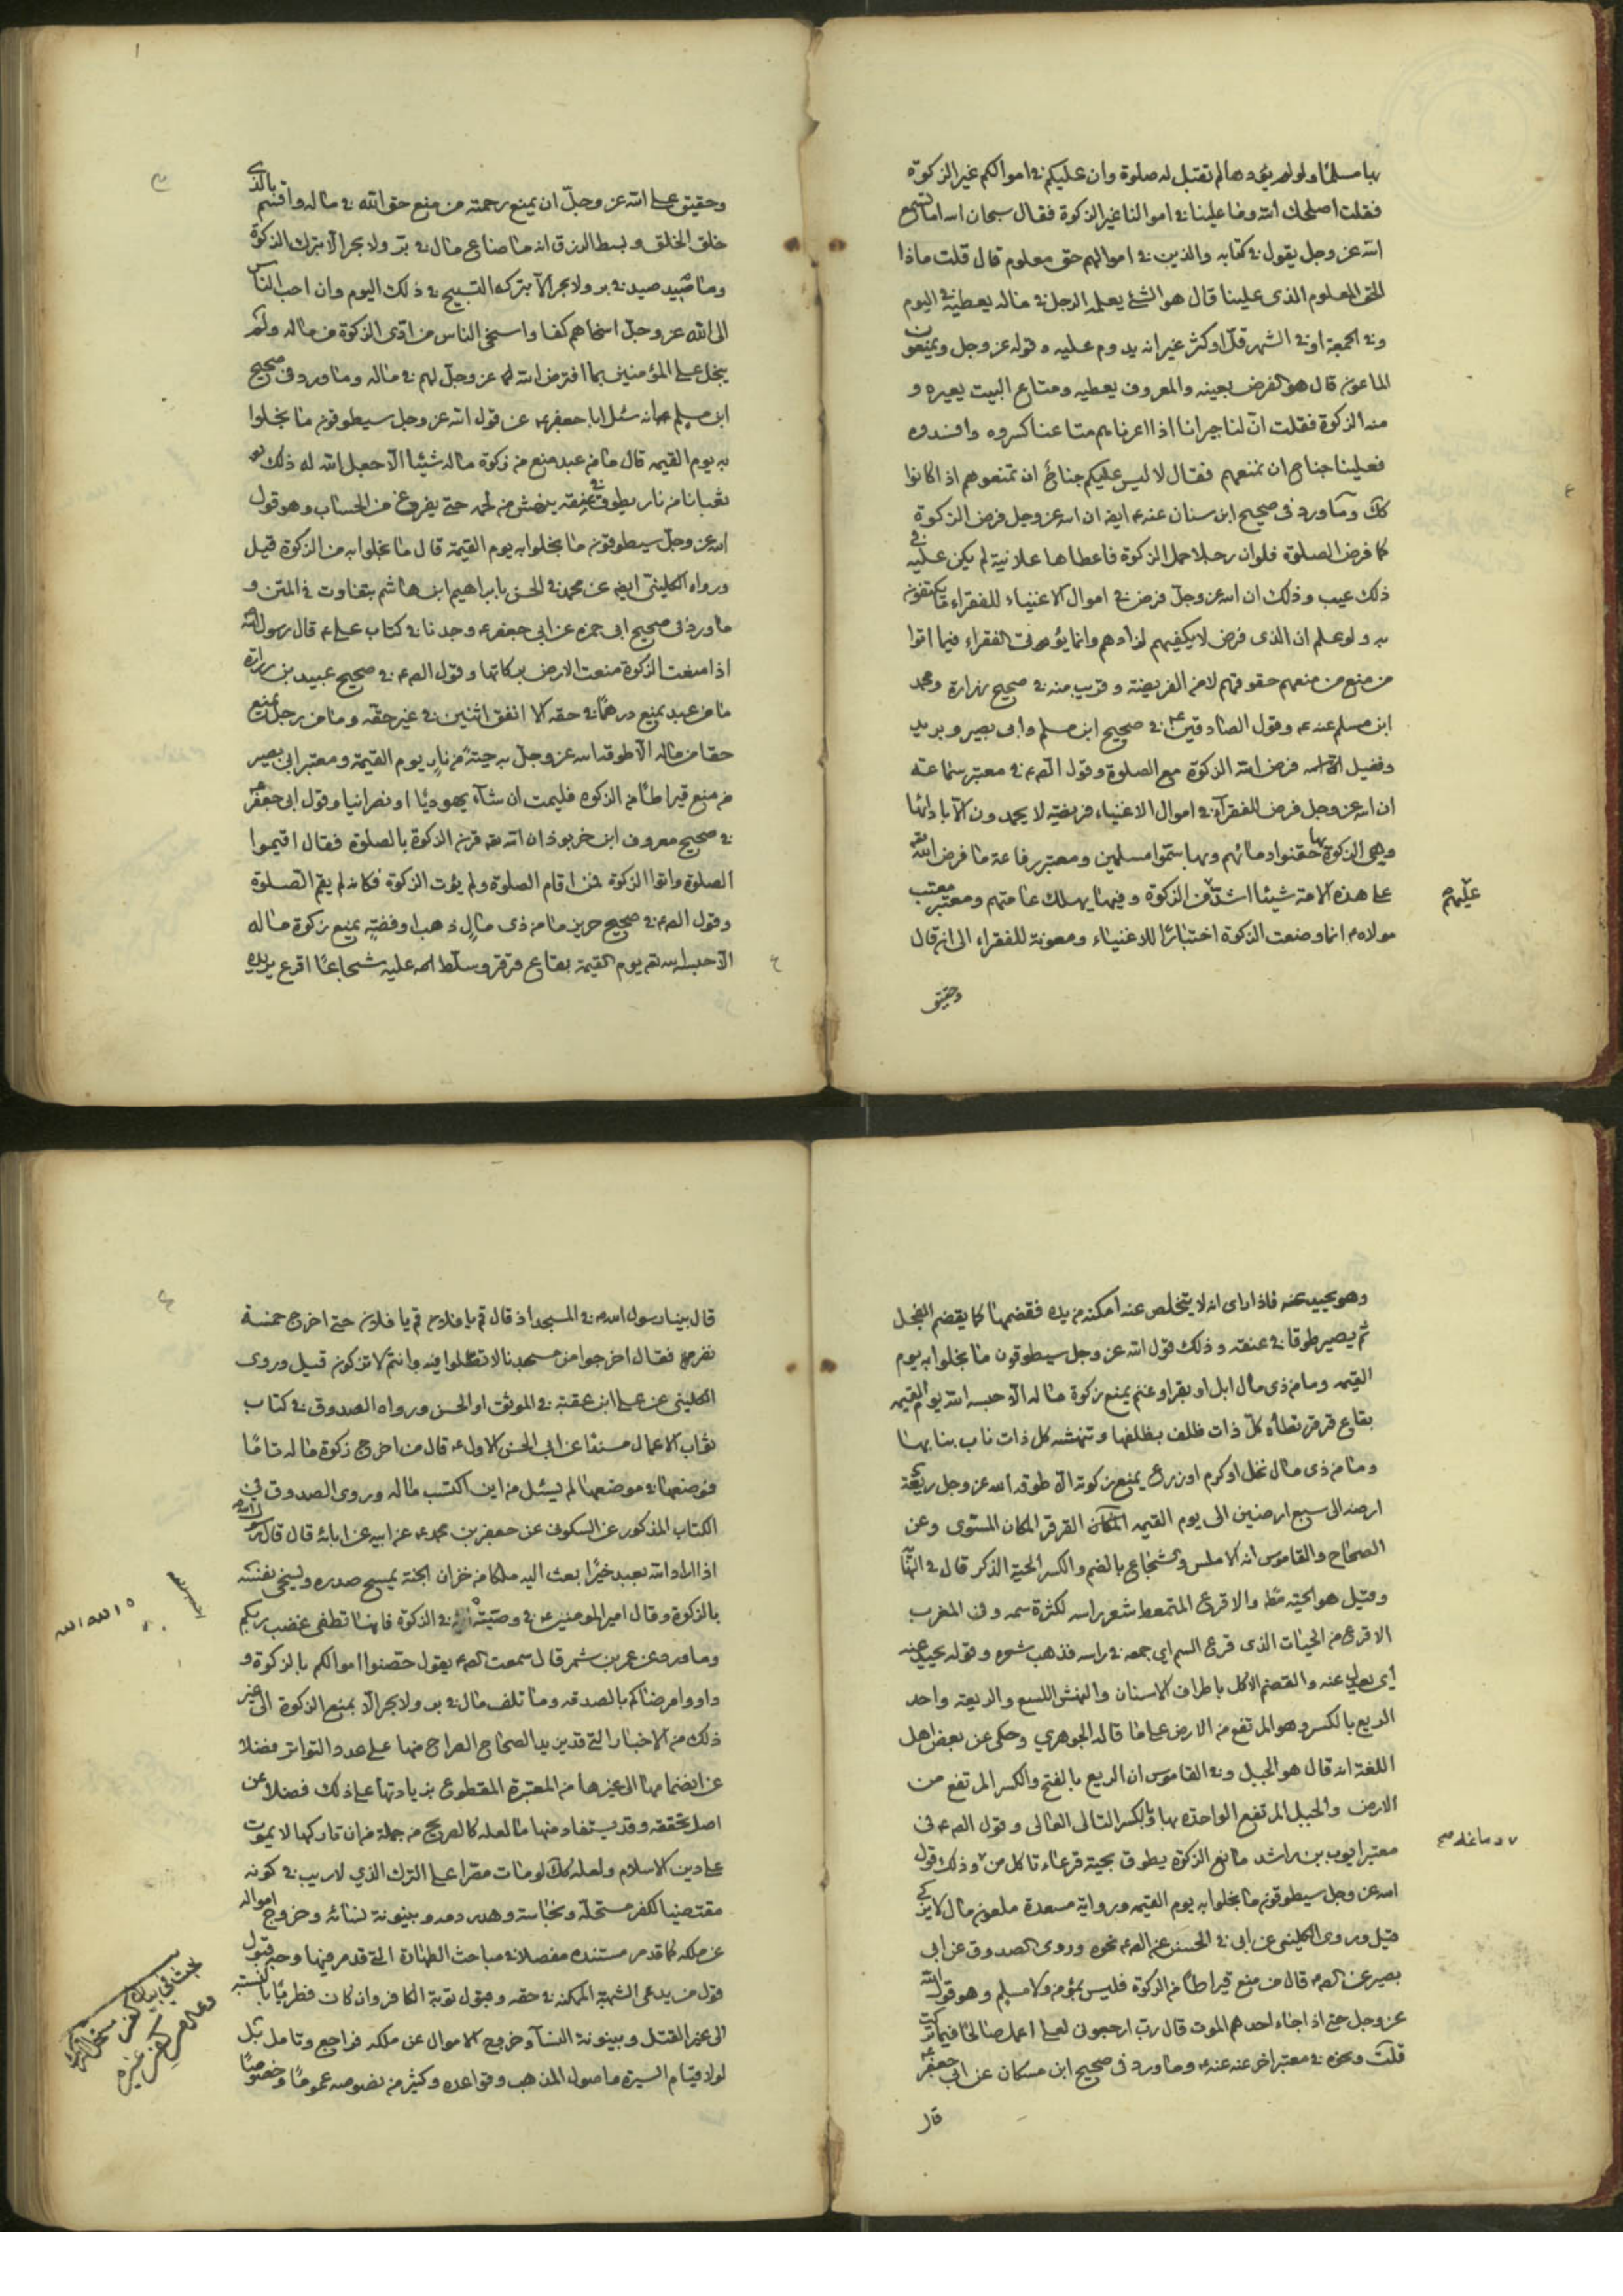 بها مسلما ولو لم يؤدها لم تقبل له صلوة وان عليكم في اموالكم غير الزكوة
فقلت اصلحك الله وما علينا في اموالنا غير الزكوة فقال سبحان الله اما تسمع
الله عز وجل يقول في كتابه والذين في اموالهم حق معلوم قال قلت ماذا
الحق المعلوم الذى علينا قال هو الشئ يعلمه الرجل في ماله يعطيه في اليوم
وفي الجمعة او في الشهر قل او كثر غير انه يدوم عليه وقوله عز وجل ويمنعون
الماعون قال هو القرض يعينه والمعروف يعطيه ومتاع البيت يعيره و
منه الزكوة فقلت ان لنا جيرانا اذا اعرناهم متاعنا كسروه وافسدوه
فعلينا جناح ان نمنعهم فقال لا ليس عليكم جناح ان تمنعوهم اذا كانوا
كك وما ورد فى صحيح ابن سنان عنه ع ايضا ان الله عز وجل فرض الزكوة
كما فرض الصلوة فلو ان رجلا حمل الزكوة فاعطاها علانية لم يكن عليه في
ذلك عيب وذلك ان الله عز وجل فرض في اموال الاغنياء للفقراء ما يكتفون
به ولو علم ان الذى فرض لا يكفيهم لزادهم وانما يؤتى الفقراء فيما اتوا
من منع من منعهم حقوقهم لا من الفريضة وقريب منه في صحيح زرارة ومحمد
ابن مسلم عنه ع وقول الصادقين ع في صحيح ابن مسلم وابى بصير وبريد
وفضيل فرض الله الزكوة مع الصلوة وقول الصم في معتبر سماعة
ان الله عز وجل فرض للفقراء في اموال الاغنياء فريضة لا يحمدون الا بادائها
وهى الزكوة بها حقنوا دمائهم وبها سموا مسلمين ومعتبر رفاعة ما فرض الله
على هذه الامة شيئا اشد من الزكوة وفيها يهلك عامتهم ومعتبر معتب
عليهم
مولاه ع انما وضعت الزكوة اختبارا للاغنياء ومعونة للفقراء الى ان قال
وحقيق
وحقيق على الله عز وجل ان يمنع رحمته من منع حق الله في ماله واقسم بالذى
خلق الخلق وبسط الرزق انه ما ضاع مال في بر ولا بحر الا بترك الزكوة
وما صيد صيد في بر ولا بحر الا بتركه التسبيح في ذلك اليوم وان احب الناس
الى الله عز وجل اسخاهم كفا واسخى الناس من ادى الزكوة من ماله ولم
يبخل على المؤمنين بما افترض الله لهم عز وجل لهم في ماله وما ورد فى صحيح
ابن مسلم انه سئل ابا جعفر ع عن قول الله عز وجل سيطوقون ما بخلوا
به يوم القيمه قال ما من عبد منع من زكوة ماله شيئا الا جعل الله له ذلك
ثعبانا من نار يطوق في عنقه ينهش من لحمه حتى يفرغ من الحساب وهو قول
الله عز وجل سيطوقون ما بخلوا به يوم القيمة قال ما بخلوا به من الزكوة قيل
ورواه الكليني ايضا عن محمد في الحسن بابراهيم ابن هاشم بتفاوت في المتن و
ما ورد فى صحيح ابى حمزه عن ابى جعفر ع وجدنا في كتاب على ع قال رسول الله
اذا منعت الزكوة منعت الارض بركاتها وقول الصم في صحيح عبيد بن زرارة
ما من عبد يمنع درهما في حقه الا انفق اثنين في غير حقه وما من رجل يمنع
حقا من ماله الا طوقه الله عز وجل به حية من نار يوم القيمة ومعتبر ابى بصير
من منع قيراطا من الزكوه فليمت ان شاء يهوديا او نصرانيا وقول ابى جعفر
في صحيح معروف ابن خربوذ ان الله تع قرن الزكوة بالصلوة فقال اقيموا
الصلوة واتوا الزكوة فمن اقام الصلوة ولم يؤت الزكوة فكانه لم يقم الصلوة
وقول الصم في صحيح حريز ما من ذى مال ذهب او فضة يمنع زكوة ماله
الا حبسه الله تع يوم القيمة بقاع قرقر وسلط الله عليه شجاعا اقرع يريده
وهو يحيد عنه فاذا راى انه لا يتخلص عنه امكنه من يده فقضمها كما يقضم الفجل
ثم يصير طوقا في عنقه وذلك قول الله عز وجل سيطوقون ما بخلوا به يوم
القيمه وما من ذى مال ابل او بقر او غنم يمنع زكوة ماله الا حبسه الله يوم القيمه
بقاع قرقر تطأه كل ذات ظلف بظلفها وتنهشه كل ذات ناب بنابها
وما من ذى مال نخل او كرم او زرع يمنع زكوته الا طوقه الله عز وجل ريعة
ارضه الى سبع ارضين الى يوم القيمه القرقر المكان المستوى وعن
الصحاح والقاموس انه الاملس والشجاع بالضم والكسر الحية الذكر قال في
وقيل هو الحية مط والاقرع المتمعط شعر راسه لكثرة سمه وفى المغرب
الاقرع من الحيات الذى قرع السم اى جمعه في راسه فذهب شعره وقوله يحيد عنه
اى يعدل عنه والقضم الاكل باطراف الاسنان والنهش اللسع والريعه واحد
الريع بالكسر وهو المرتفع من الارض على ما قاله الجوهري وحكى عن بعض اهل
اللغة انه قال هو الجبل وفي القاموس ان الريع بالفتح والكسر المرتفع من
الارض والجبل المرتفع الواحدة بها وبالكسر التالى العالى وقول الصم في
معتبر ايوب بن راشد مانع الزكوة يطوق بحية قرعاء تاكل من وذلك قول
دماغه صح
الله عز وجل سيطوقون ما بخلوا به يوم القيمه ورواية مسعدة ملعون مال لا يزكى
قيل وروى الكليني عن ابى في الحسن عن الصم نحوه وروى الصدوق عن ابى
بصير عن الصم قال من منع قيراطا من الزكوة فليس بمؤمن ولا مسلم وهو قول الله
عز وجل حتى اذا جاء احدهم الموت قال رب ارجعون لعلى اعمل صالحا فيما تركت
قلت ونحوه في معتبر اخر عنه ع وما ورد فى صحيح ابن مسكان عن ابى جعفر
قال
قال بينا رسول الله في المسجد اذ قال قم يا فلان قم يا فلان حتى اخرج خمسة
نفر فقال اخرجوا من مسجدنا لا تصلوا فيه وانتم لا تزكون قيل وروى
الكليني عن على ابن عقبة في الموثق او الحسن ورواه الصدوق في كتاب
ثواب الاعمال مسندا عن ابى الحسن الاول ع قال من اخرج زكوة ماله تاما
فوضعها في موضعها لم يسئل من اين اكتسب ماله وروى الصدوق في
الكتاب المذكور عن السكونى عن جعفر بن محمد ع عن ابيه عن ابائه قال قال رسول الله
اذا اراد الله بعبد خيرا بعث اليه ملكا من خزان الجنة يمسح صدره ويسخى نفسه
بالزكوة وقال امير المومنين ع في وصيته في الزكوة فانها تطفى غضب ربكم
وما ورد عن عمر بن شمر قال سمعت الصم يقول حصنوا اموالكم بالزكوة و
داووا مرضاكم بالصدقه وما تلف مال في بر ولا بحر الا بمنع الزكوة الى غير
ذلك من الاخبار التى قد يزيد الصحاح الصراح منها على عدد التواتر فضلا
عن انضمامها الى غيرها من المعتبرة المقطوع بزيادتها على ذلك فضلا عن
اصل تحققه وقد يستفاد منها ما لعله كالصريح من جملة من ان تاركها لا يموت
على دين الاسلام ولعله كك لو مات مقرا على الترك الذي لا ريب في كونه
مقتضيا لكفر مستحله ونجاسته وهدر دمه وبينونة نسائه وخروج امواله
عن ملكه كما قد مر مستنده مفصلا في مباحث الطهارة التى قد مر فيها وجه قبول
قول من يدعى الشبهة الممكنه في حقه وقبول توبة الكافر وان كان فطريا بالنسبة
الى غير القتل وبينونة النساء وخروج الاموال عن ملكه فراجع وتامل بل
لولا قيام السيرة ما صول المذهب وقواعده وكثير من نصوصه عموما وخصوصا
بحث في بيان كفر مستحل الترك